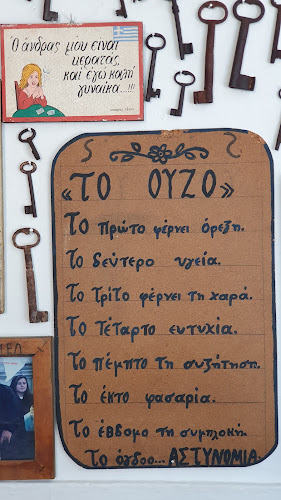 Ο άνδρας μου είναι
κερατάς,
και εγώ καλή
γυναίκα...!!!
«ΤΟ ΟΥΖΟ»
Το πρώτο φέρνει όρεξη.
Το δεύτερο υγεία.
Το τρίτο φέρνει τη χαρά.
Το τέταρτο ευτυχία.
Το πέμπτο τη συζήτηση.
Το έκτο φασαρία.
Το έβδομο τη συμπλοκή.
Το όγδοο... ΑΣΤΥΝΟΜΙΑ.